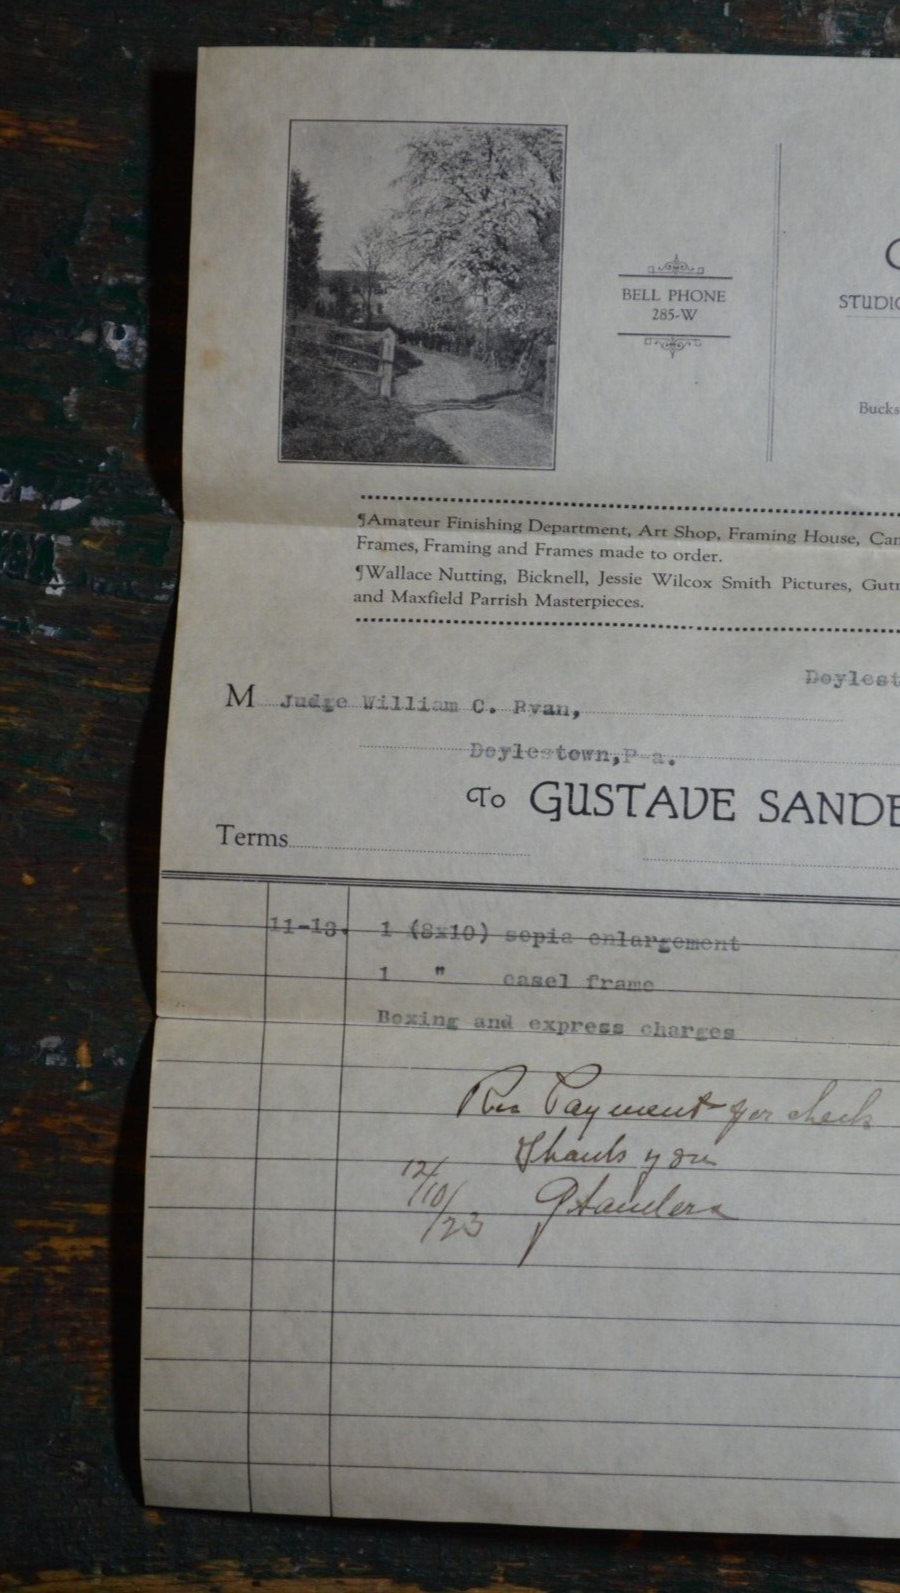 BELL PHONE
285-W
STUDIO
Bucks
¶Amateur Finishing Department, Art Shop, Framing House, Can
Frames, Framing and Frames made to order.
¶Wallace Nutting, Bicknell, Jessie Wilcox Smith Pictures, Gut
and Maxfield Parrish Masterpieces.
Doylest
M Judge William C. Ryan,
Doylestown,P a.
To GUSTAVE SANDE
Terms
11-13. 1 (8x10) sepia enlargement
1 " easel frame
Boxing and express charges
Rec Payment per check
Thank you
12/10/23 G Sanders